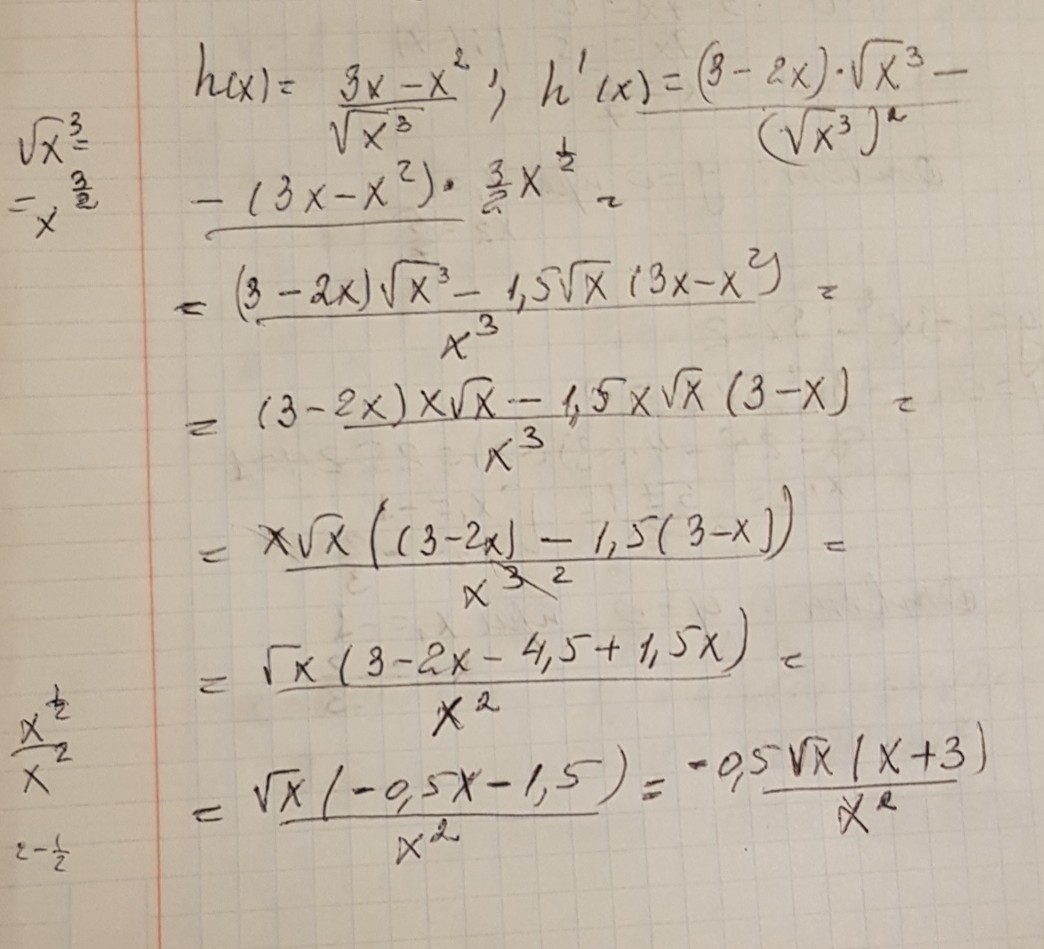 h(x) = (3x - x²)/√x³ ; h'(x) = ((3 - 2x)·√x³ -
√x³ =
= x^(3/2)
- (3x - x²)· 3/2 x^(1/2))/(√x³)² =
= ((3 - 2x)√x³ - 1,5√x (3x - x²))/x³ =
= ((3 - 2x) x√x - 1,5 x√x (3 - x))/x³ =
= x√x ((3 - 2x) - 1,5(3 - x))/x³ ² =
= √x (3 - 2x - 4,5 + 1,5x)/x² =
x^(1/2)/x²
= √x (-0,5x - 1,5)/x² = -0,5√x (x + 3)/x²
2 - 1/2